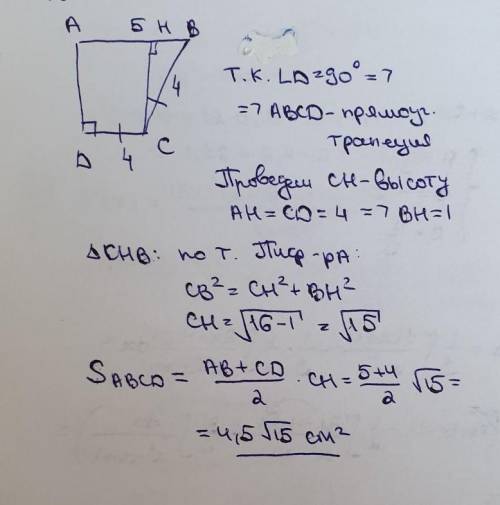 A 5 H B
4
D 4 C
Т.К. ∠D=90° =>
=> ABCD-прямоуг.
трапеция
Проведём CH-высоту
AH=CD=4 => BH=1
△CHB: по т. Пиф-ра:
CB²=CH²+BH²
CH=√16-1 = √15
S ABCD = AB+CD/2 · CH= 5+4/2 √15=
= 4,5√15 см²